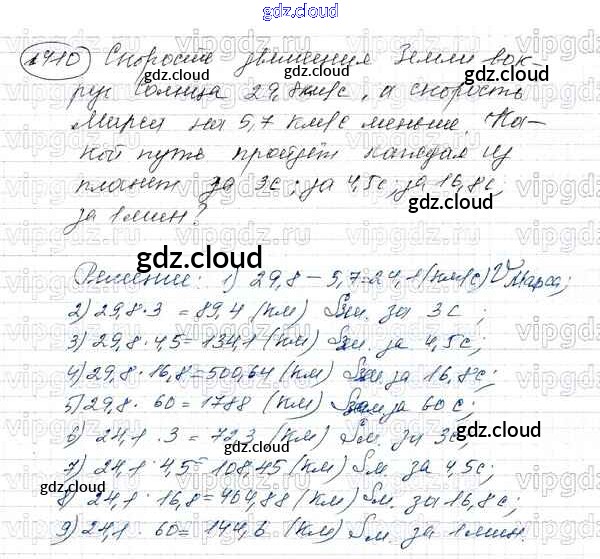 gdz.cloud
1410 Скорость движения Земли вок-
руг Солнца 29,8км/с, а скорость
Марса на 5,7 км/с меньше. Ка-
кой путь пройдёт каждая из
планет за 3с; за 4,5с; за 16,8с;
за 1 мин?
gdz.cloud
Решение: 1) 29,8 – 5,7=24,1(км/с) V Марса;
2) 29,8 · 3 = 89,4 (км) Sзм. за 3с;
3) 29,8 · 4,5 = 134,1 (км) Sзм. за 4,5с;
4) 29,8 · 16,8=500,64 (км) Sзм за 16,8с;
5) 29,8 · 60=1788 (км) Sзем за 60с;
6) 24,1 · 3 = 72,3 (км) Sм. за 3с;
7) 24,1 · 4,5= 108,45 (км) Sм. за 4,5с;
8) 24,1 · 16,8=404,88 (км) Sм. за 16,8с;
9) 24,1 · 60= 144,6 (км) Sм. за 1 мин.